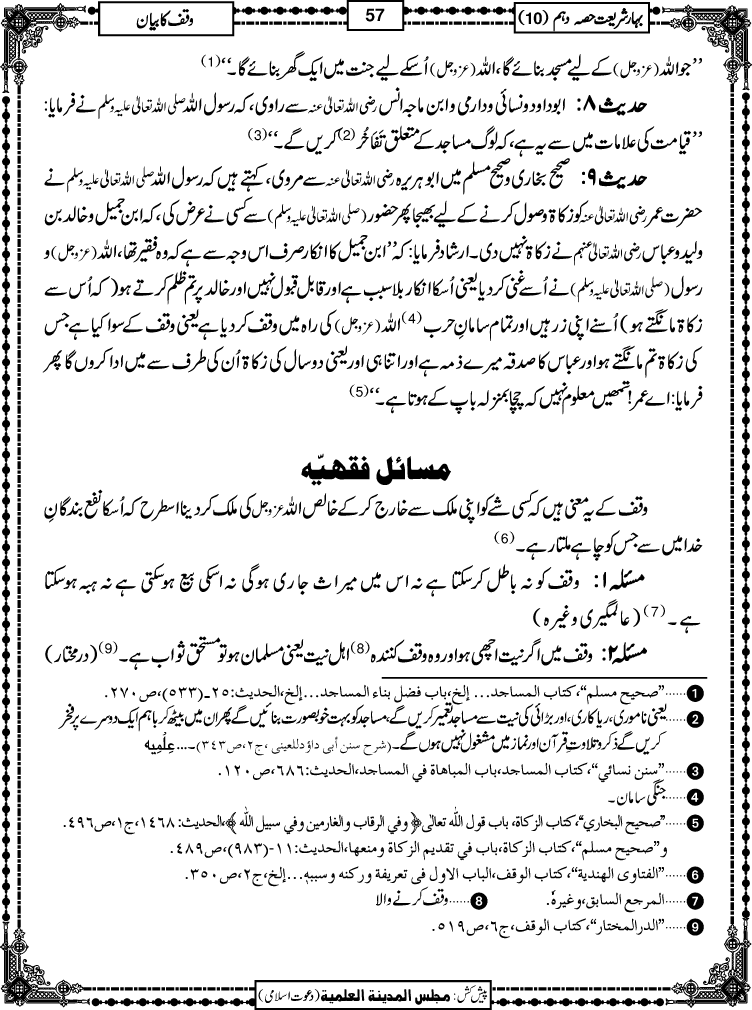 بہارِشریعت حصہ دہم (10)
57
وقف کا بیان
’’جو اللہ (عزوجل) کے لیے مسجد بنائے گا، اللہ (عزوجل) اُسکے لیے جنت میں ایک گھر بنائے گا۔‘‘(1)
حدیث ۸: ابوداود و نسائی و دارمی و ابن ماجہ انس رضی اللہ تعالیٰ عنہ سے راوی، کہ رسول اللہ صلی اللہ تعالیٰ علیہ وسلم نے فرمایا:
’’قیامت کی علامات میں سے یہ ہے، کہ لوگ مساجد کے متعلق تَفاخُر(2) کریں گے۔‘‘(3)
حدیث ۹: صحیح بخاری و صحیح مسلم میں ابوہریرہ رضی اللہ تعالیٰ عنہ سے مروی، کہتے ہیں کہ رسول اللہ صلی اللہ تعالیٰ علیہ وسلم نے
حضرت عمر رضی اللہ تعالیٰ عنہ کو زکاۃ وصول کرنے کے لیے بھیجا پھر حضور (صلی اللہ تعالیٰ علیہ وسلم) سے کسی نے عرض کی، کہ ابن جمیل و خالد بن
ولید و عباس رضی اللہ تعالیٰ عنہم نے زکاۃ نہیں دی۔ ارشاد فرمایا: کہ ’’ابن جمیل کا انکار صرف اس وجہ سے ہے کہ وہ فقیر تھا، اللہ (عزوجل) و
رسول (صلی اللہ تعالیٰ علیہ وسلم) نے اُسے غنی کر دیا یعنی اُسکا انکار بلا سبب ہے اور قابل قبول نہیں اور خالد پر تم ظلم کرتے ہو (کہ اُس سے
زکاۃ مانگتے ہو) اُسنے اپنی زرہیں اور تمام سامانِ حرب(4) اللہ (عزوجل) کی راہ میں وقف کر دیا ہے یعنی وقف کے سوا کیا ہے جس
کی زکاۃ تم مانگتے ہو اور عباس کا صدقہ میرے ذمہ ہے اور اتنا ہی اور یعنی دو سال کی زکاۃ اُن کی طرف سے میں ادا کروں گا پھر
فرمایا: اے عمر! تمھیں معلوم نہیں کہ چچا بمنزلہ باپ کے ہوتا ہے۔‘‘(5)
مسائل فقھیّہ
وقف کے یہ معنی ہیں کہ کسی شے کو اپنی ملک سے خارج کر کے خالص اللہ عزوجل کی ملک کر دینا اسطرح کہ اُسکا نفع بندگانِ
خدا میں سے جس کو چاہے ملتا رہے۔(6)
مسئلہ ۱: وقف کو نہ باطل کرسکتا ہے نہ اس میں میراث جاری ہوگی نہ اسکی بیع ہوسکتی ہے نہ ہبہ ہوسکتا
ہے۔(7) (عالمگیری وغیرہ)
مسئلہ ۲: وقف میں اگر نیت اچھی ہو اور وہ وقف کنندہ(8) اہل نیت یعنی مسلمان ہو تو مستحق ثواب ہے۔(9) (درمختار)
1 ......”صحیح مسلم“، کتاب المساجد... إلخ، باب فضل بناء المساجد...إلخ، الحدیث: ۲۵۔(۵۳۳)، ص۲۷۰.
2 ......یعنی ناموری، ریاکاری، اور بڑائی کی نیت سے مساجد تعمیر کریں گے، مساجد کو بہت خوبصورت بنائیں گے پھر ان میں بیٹھ کر باہم ایک دوسرے پر فخر
کریں گے ذکر و تلاوتِ قرآن اور نماز میں مشغول نہیں ہوں گے۔ (شرح سنن أبی داوٗد للعینی، ج۲، ص۳۴۳)۔... عِلْمِیہ
3 ......”سنن نسائی“، کتاب المساجد، باب المباھاة في المساجد، الحدیث: ۶۸۶، ص۱۲۰.
4 ......جنگی سامان۔
5 ......”صحیح البخاري“، کتاب الزکاة، باب قول اللّٰہ تعالٰی ﴿وفی الرقاب والغارمین وفی سبیل اللّٰہ﴾، الحدیث: ۱۴۶۸، ج۱، ص۴۹۶.
و ”صحیح مسلم“، کتاب الزکاة، باب في تقدیم الزکاة ومنعھا، الحدیث: ۱۱-(۹۸۳)، ص۴۸۹.
6 ......”الفتاوی الھندیة“، کتاب الوقف، الباب الاول فی تعریفة ورکنه وسببه...إلخ، ج۲، ص۳۵۰.
7 ......المرجع السابق، وغیرہٗ.
8 ......وقف کرنے والا
9 ......”الدرالمختار“، کتاب الوقف، ج۶، ص۵۱۹.
پیش کش: مجلس المدینة العلمیة (دعوت اسلامی)